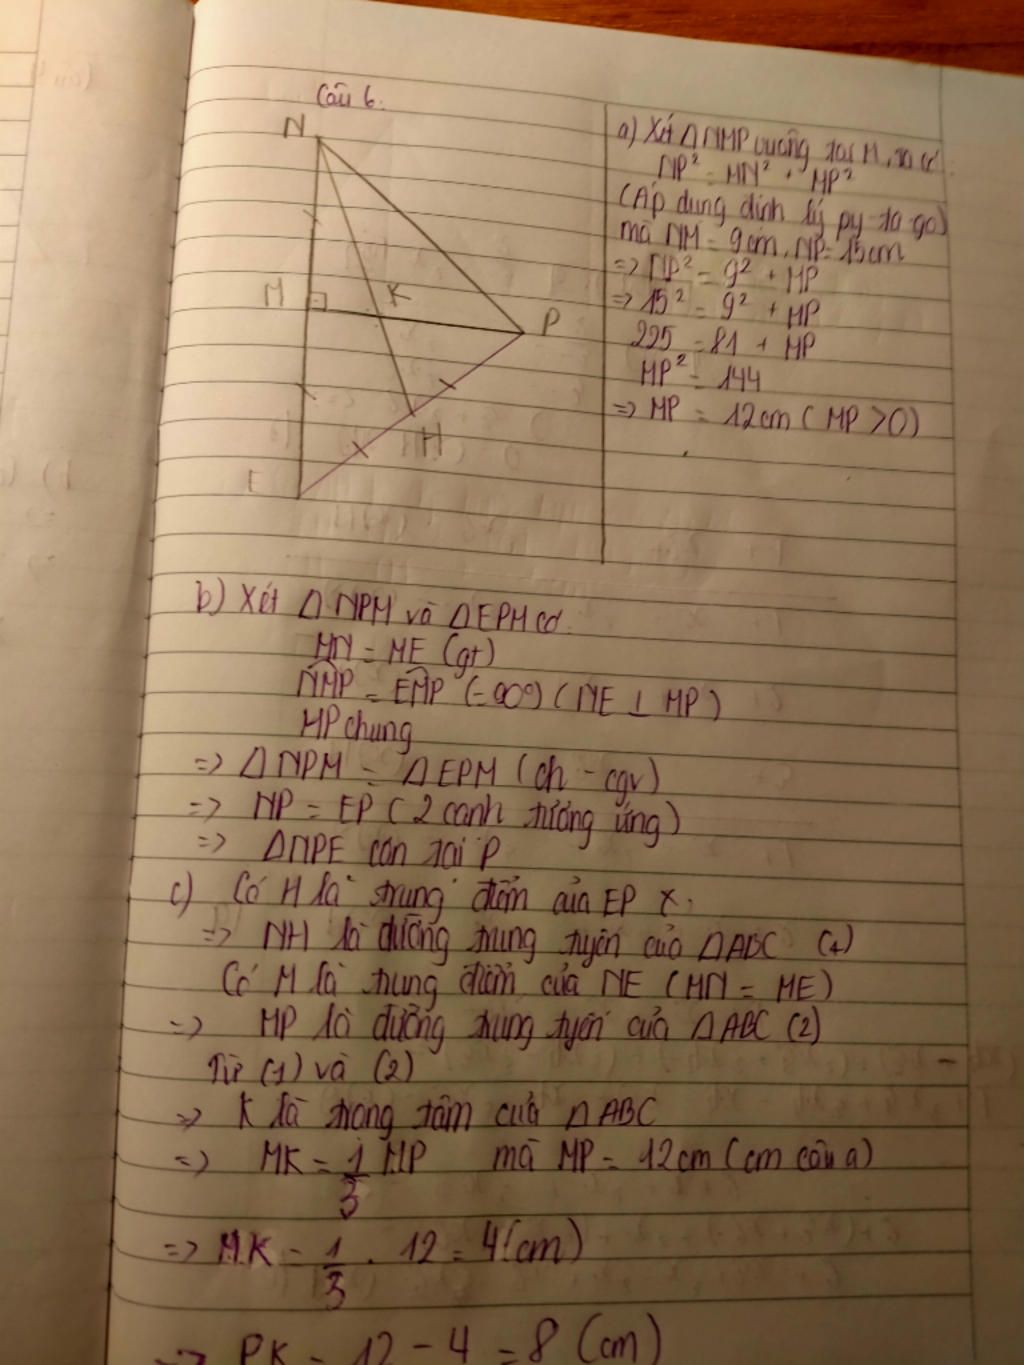 Câu 6.
N
M
K
P
H
E
a) Xét △NMP vuông tại M, ta có:
NP² = MN² + MP²
(Áp dụng định lý py-ta-go)
mà NM = 9cm, NP = 15cm
=> NP² = 9² + MP
=> 15² = 9² + MP
225 = 81 + MP
MP² = 144
=> MP = 12cm (MP > 0)
b) Xét △NPM và △EPM có:
MN = ME (gt)
NMP = EMP (= 90°) (NE ⊥ MP)
MP chung
=> △NPM = △EPM (ch - cgv)
=> NP = EP (2 cạnh tương ứng)
=> △NPE cân tại P
c) Có H là trung điểm của EP
=> NH là đường trung tuyến của △ABC (1)
Có M là trung điểm của NE (MN = ME)
=> MP là đường trung tuyến của △ABC (2)
Từ (1) và (2)
=> K là trọng tâm của △ABC
=> MK = 1/3 MP mà MP = 12cm (cm câu a)
=> MK = 1/3 . 12 = 4 (cm)
=> PK = 12 - 4 = 8 (cm)